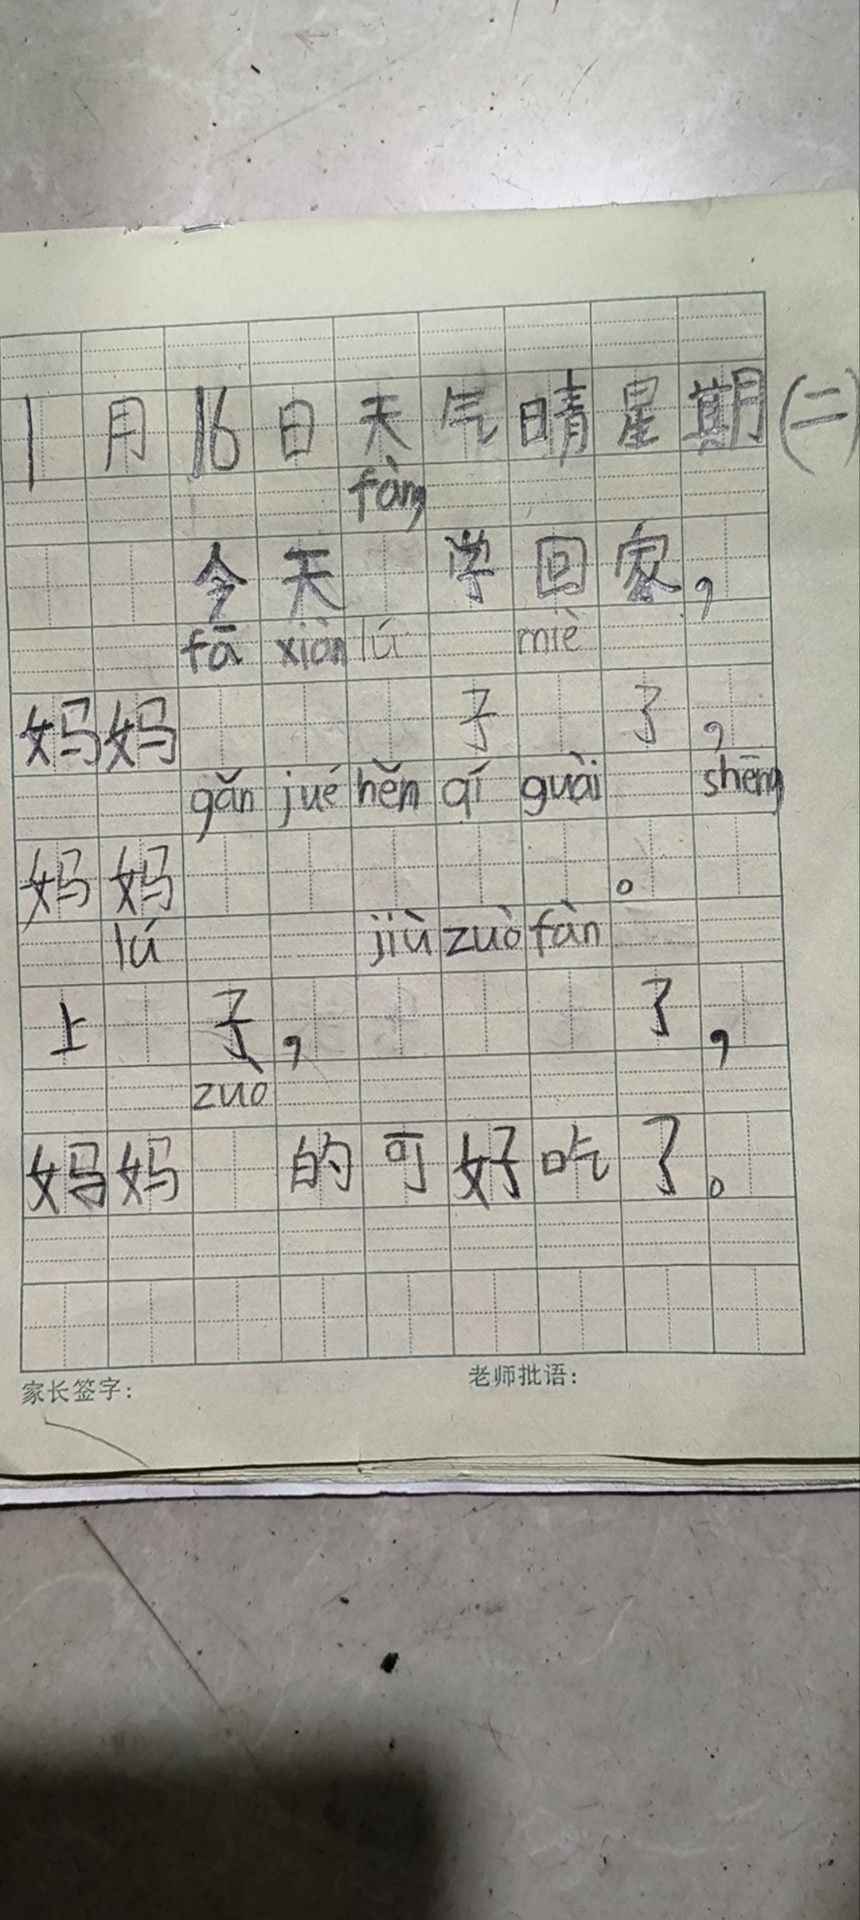 1月16日天气晴星期(二)
fàng
今天 学回家，
fā xiàn lú miè
妈妈 子 了，
gǎn jué hěn qí guài shēng
妈妈 。
lú jiù zuò fàn
上 子， 了，
zuò
妈妈 的可好吃了。
家长签字： 老师批语：